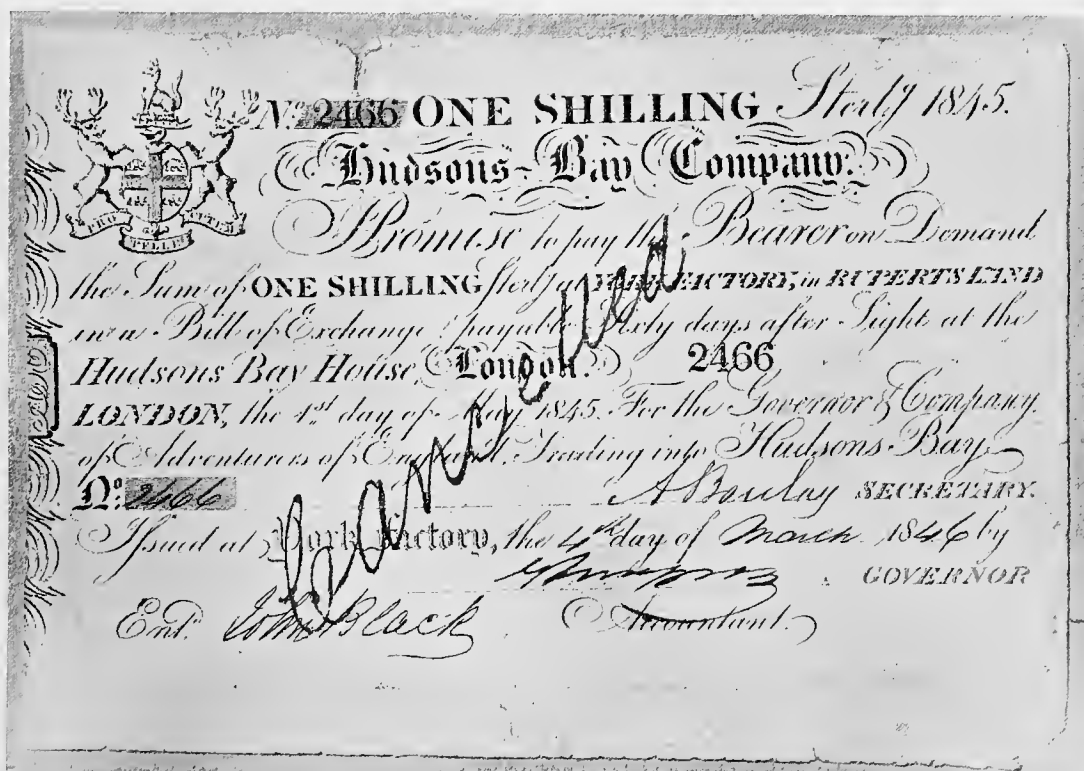 No. 2466 ONE SHILLING Sterlg 1845.
Hudsons-Bay Company.
PRO PELLE CUTEM
Promise to pay the Bearer on Demand
the Sum of ONE SHILLING Sterlg at YORK FACTORY, in RUPERTS LAND
in a Bill of Exchange payable Sixty days after Sight at the
Hudsons Bay House, London. 2466
LONDON, the 1st day of May 1845. For the Governor & Company
of Adventurers of England, Trading into Hudsons Bay
No. 2466 SECRETARY.
Issued at York Factory, the 4th day of March 1846 by
GOVERNOR
Ent. John Black Accountant.
Cancelled